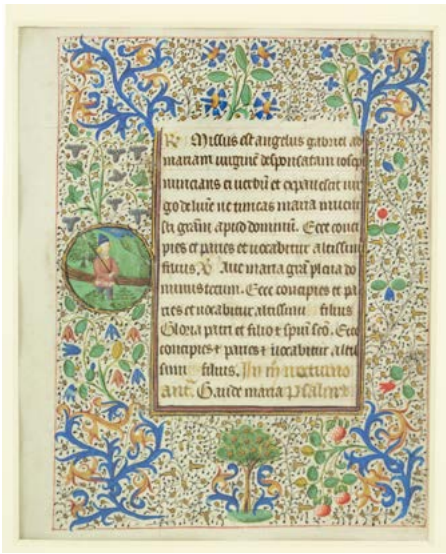 R Missus est angelus gabriel ad
mariam virginē desponsatam ioseph
nuncians ei verbū et expavescit vir
go de lumīe ne timeas maria inveni
sti grām apud dominum. Ecce conci
pies et paries et vocabitur altissimi
filius. V Ave maria grā plena do
minus tecum. Ecce concipies et pa
ries et vocabitur altissimi filius
Gloria patri et filio et spiri sco. Ecce
concipies et paries et vocabitur altis
simi filius. In nocturno
ant. Gaude maria